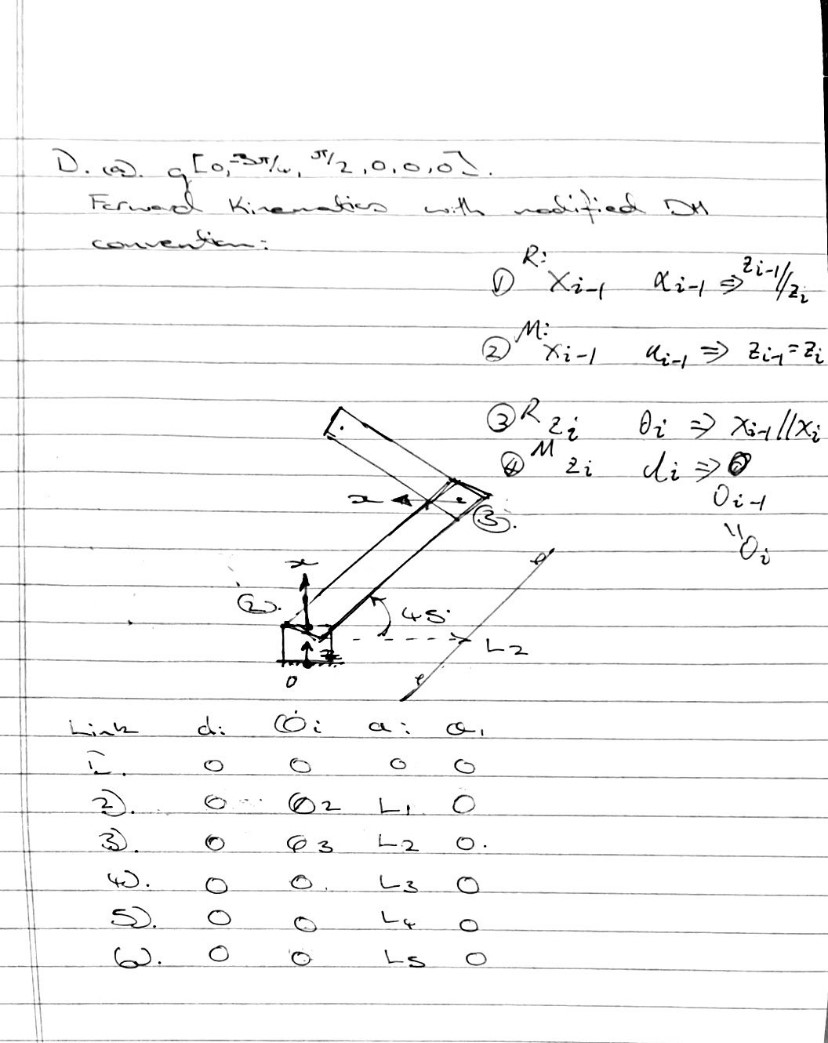 D. (a). q[0, -3π/4, π/2, 0, 0, 0].
Forward Kinematics with modified DH
convention:
① R: Xi-1 αi-1 ⇒ Zi-1//Zi
② M: Xi-1 ai-1 ⇒ Zi-1=Zi
③ R Zi θi ⇒ Xi-1//Xi
④ M Zi di ⇒
Oi-1
"Oi
x
③.
x
②.
45°
z
L2
0
Link di θi ai α1
1. 0 0 0 0
2). 0 θ2 L1 0
3). 0 θ3 L2 0.
4). 0 0. L3 0
5). 0 0 L4 0
6). 0 0 L5 0